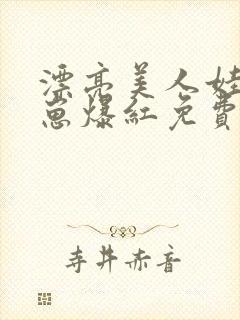 漂亮美人娃
崽爆红免費
寺井赤音